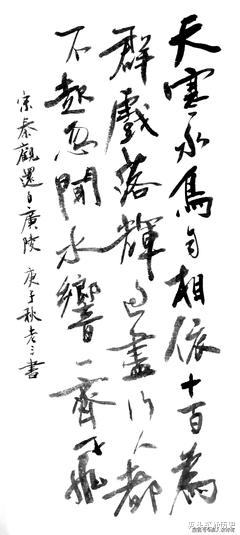 天寒水鳥自相依十百為
群戲落輝過盡行人都
不起忽聞水響一齊飛
宋秦觀還自廣陵 庚子秋老三書